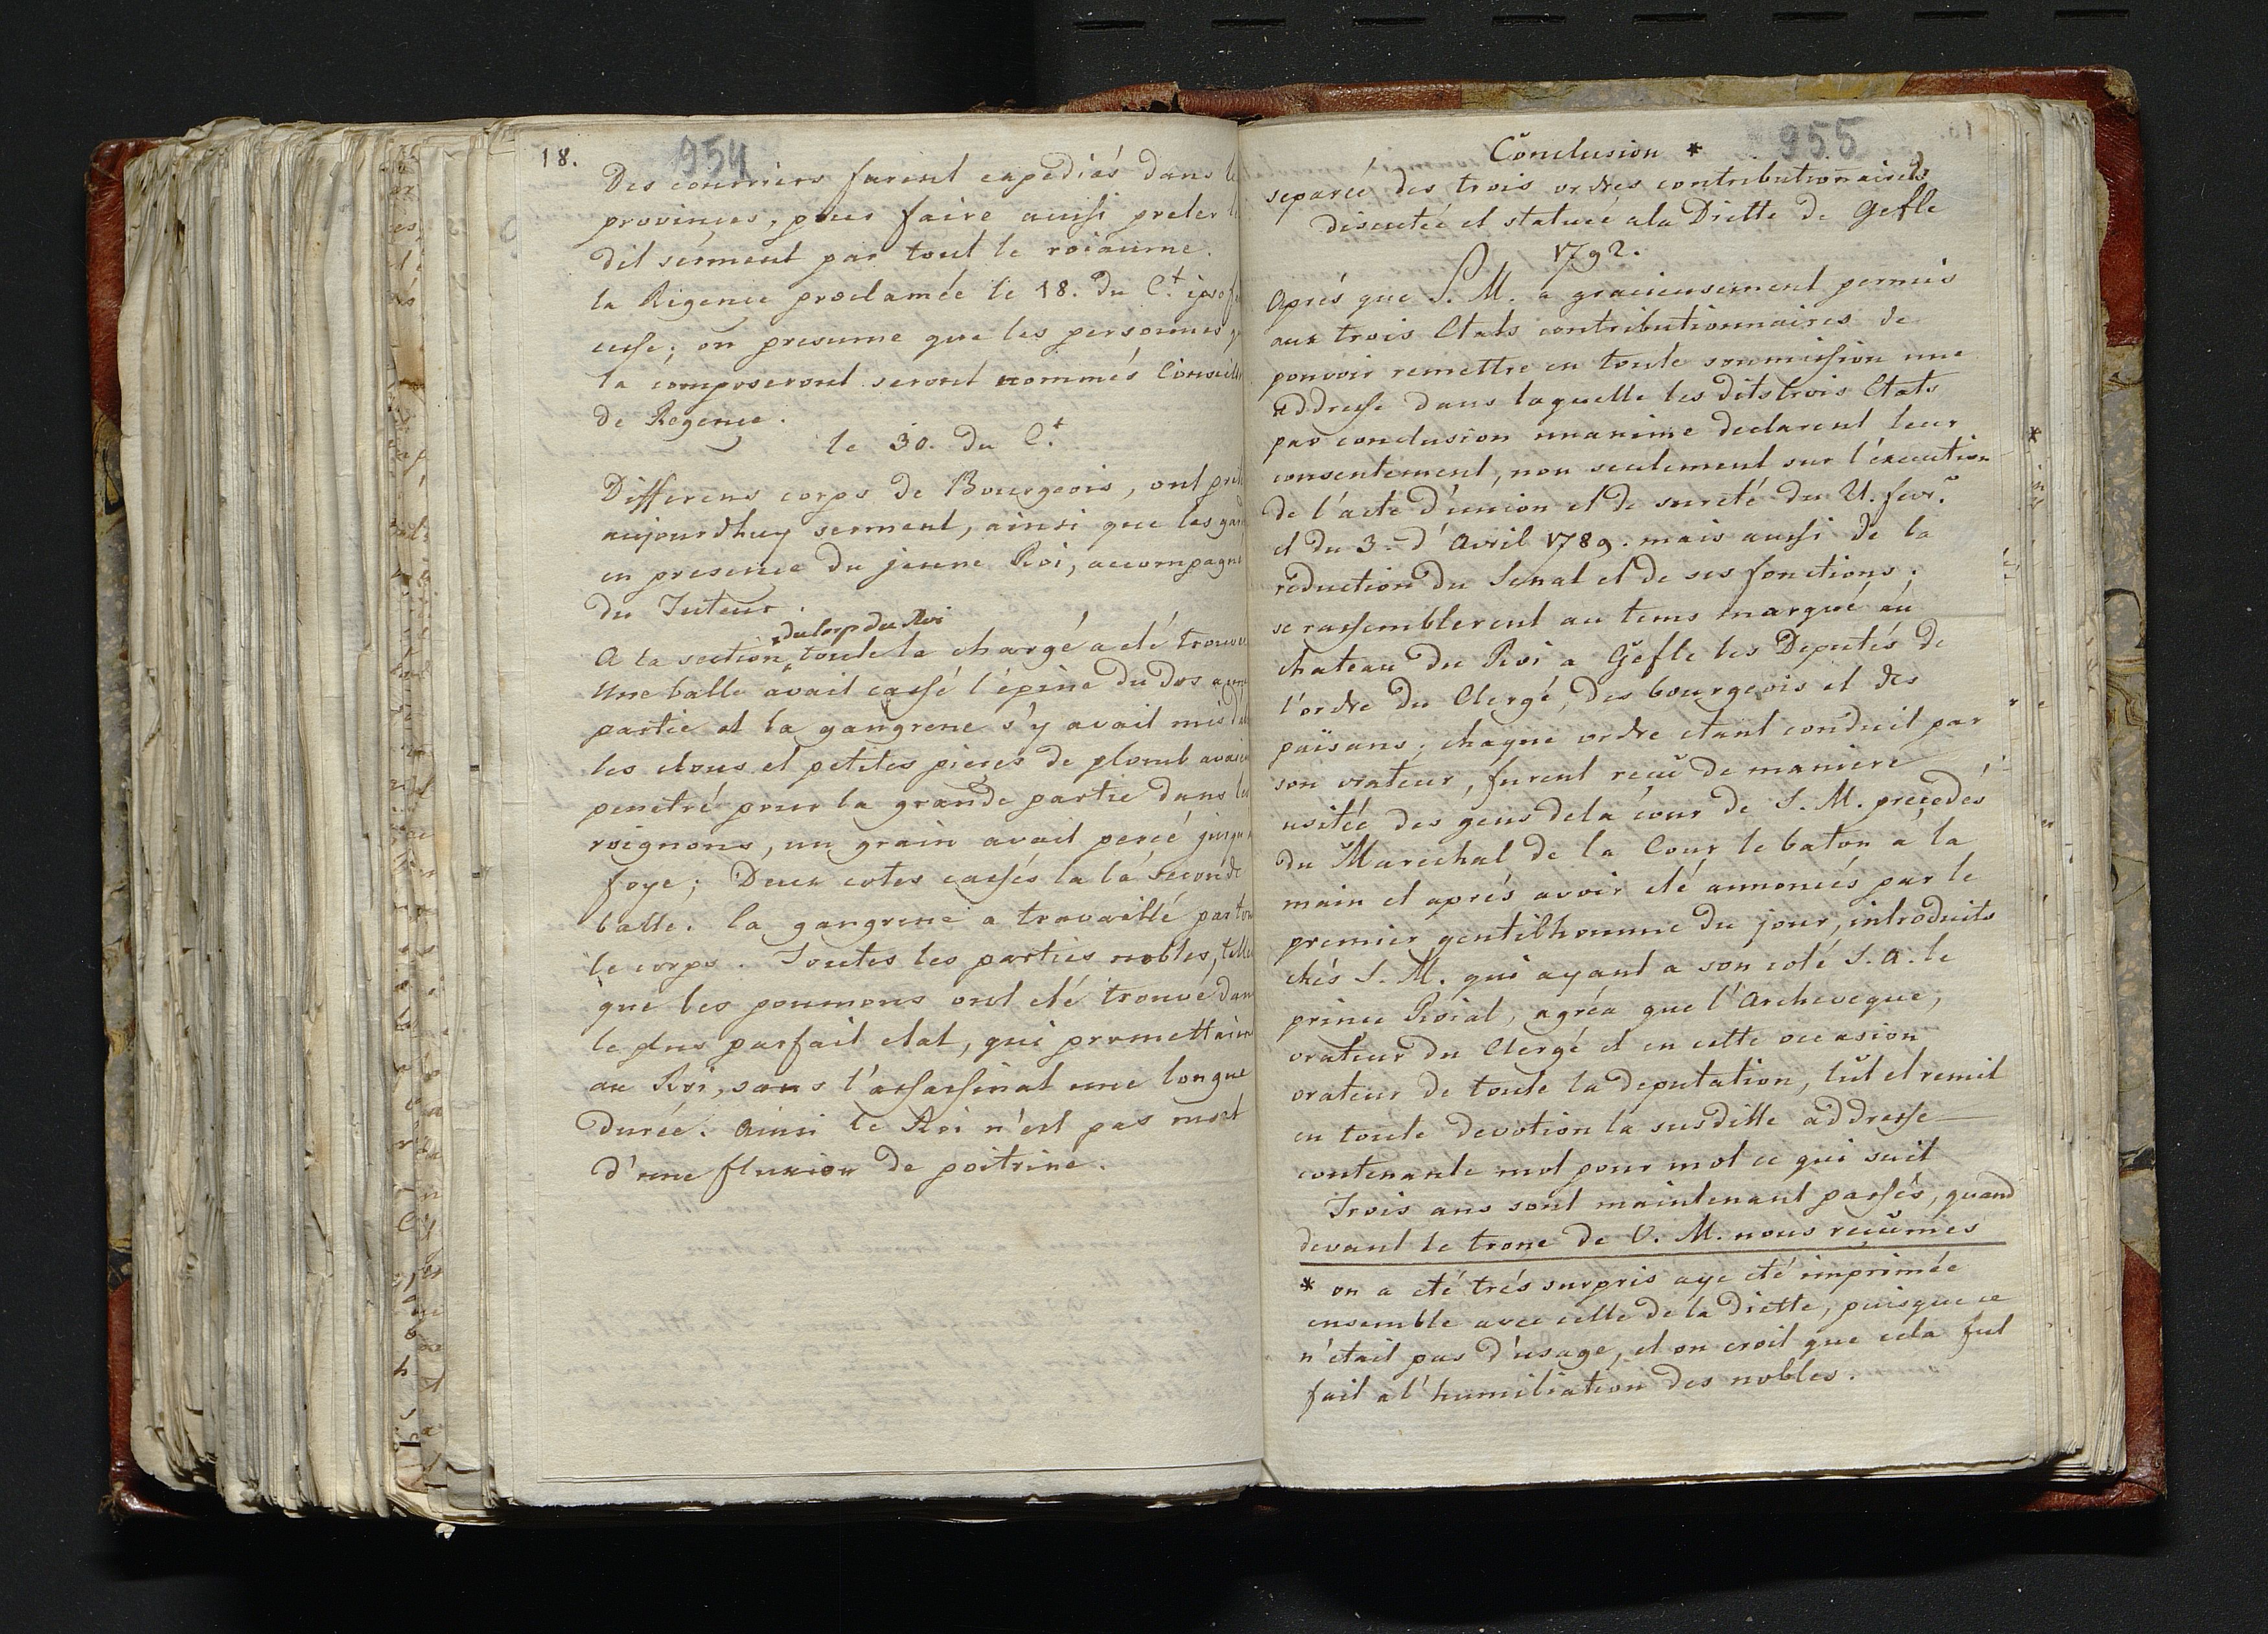 18.
954
Des courriers furent expediés dans le
provinces, pour faire aussi preter le
dit serment par tout le roiaume.
la Regence proclamée le 18. du C.t ipso f
cesse; on presume que les personnes q
la composeront seront nommés Conseill
de Regence.
le 30. du C.t
Differens corps de Bourgeois, ont pret
aujourdhuy serment, ainsi que les gard
en presence du jeune Roi, accompagné
du Tuteur.
du Corp du Roi
A la section, toute la charge a eté trouvé
Une balle avait cassé l'épine du dos a une
partie et la gangrene s'y avait mis d
les clous et petites pieres de plomb avaien
penetré pour la grande partie dans les
roignons, un grain avait percé jusqu'
foye; Deux cotes cassés la la seconde
balle. la gangrene a travaillé par tou
le corps. Toutes les parties nobles, telle
que les poumons ont eté trouvé dan
le plus parfait etat, qui promettaien
au Roi, sans l'assassinat une longue
durée. Ainsi le Roi n'est pas mort
d'une fluxion de poitrine.
955
Conclusion *
separée des trois ordres contributionaires
discutée et statuée a la Diette de Gefle
1792.
Aprés que S. M. a gracieusement permis
aux trois Etats contributionnaires de
pouvoir remettre en toute soumission une
addresse dans laquelle les dits trois Etats
par conclusion unanime declarent leur
consentement, non seulement sur l'éxecution
de l'acte d'union et de sureté du 21. fevr.
et du 3. d'Avril 1789. mais aussi de la
reduction du Senat et de ses fonctions;
se rassemblerent au tems marqué au
chateau du Roi a Gefle les Deputés de
l'ordre du Clergé, des bourgeois et des
païsans; chaque ordre etant conduit par
son orateur, furent reçu de maniere
usitée des gens de la cour de S. M. precedés
du Marechal de la Cour le baton a la
main et aprés avoir eté annoncés par le
premier gentilhomme du jour, introduits
chés S. M. qui ayant a son coté S. A. le
prince Roial, agréa que l'Archeveque,
orateur du Clergé et en cette occasion
orateur de toute la deputation, lut et remit
en toute devotion la susditte addresse
contenante mot pour mot ce qui suit
Trois ans sont maintenant passés, quand
devant le trone de V. M. nous reçumes
* on a eté trés surpris aye eté imprimée
ensemble avec celle de la Diette, puisque ce
n'était pas d'usage, et on croit que cela fut
fait a l'humiliation des nobles.